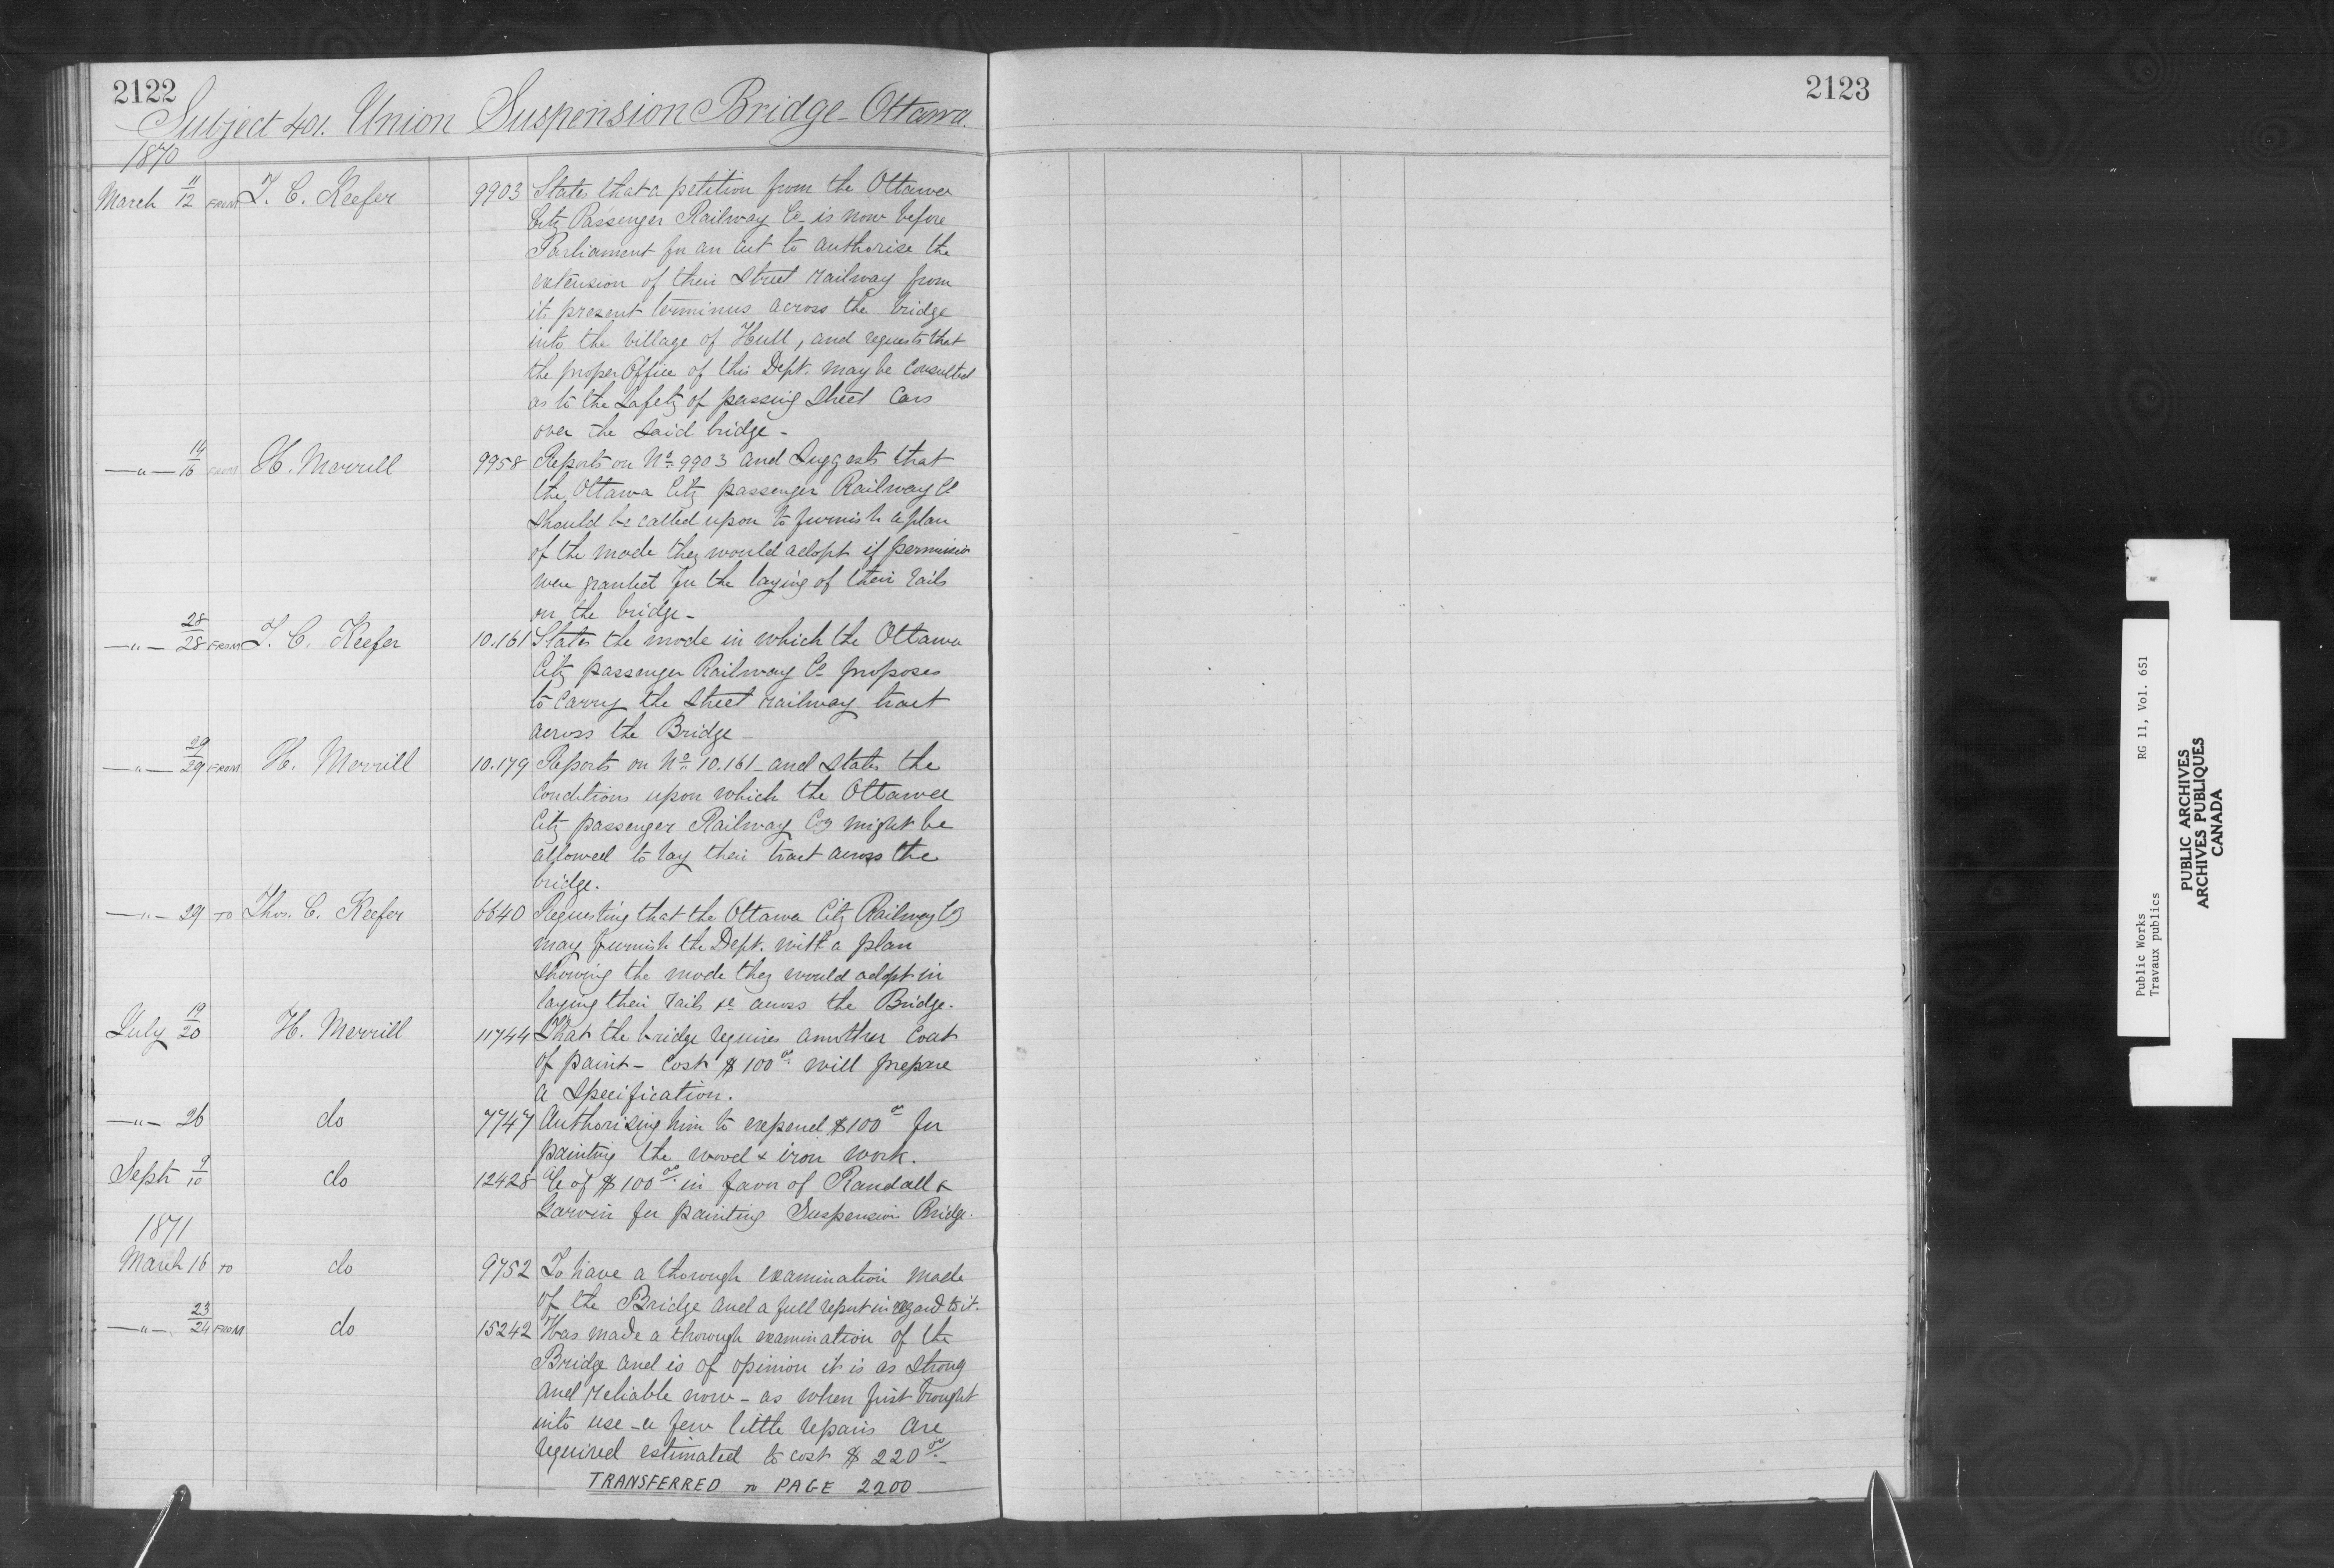 2122
Subject 401. Union Suspension Bridge - Ottawa.
1870
March 11/12 FROM T. C. Keefer 9903 States that a petition from the Ottawa
City Passenger Railway Co. is now before
Parliament for an act to authorise the
extension of their Street railway from
its present terminus across the bridge
into the village of Hull, and requests that
the proper Office of this Dept. may be consulted
as to the safety of passing Street Cars
over the said bridge -
—"— 14/16 FROM H. Merrill 9958 Reports on No. 9903 and Suggests that
the Ottawa City passenger Railway Co
should be called upon to furnish a plan
of the mode they would adopt if permission
were granted for the laying of their rails
on the bridge -
—"— 28/28 FROM T. C. Keefer 10.161 States the mode in which the Ottawa
City passenger Railway Co proposes
to carry the Street railway tract
across the Bridge -
—"— 29/29 FROM H. Merrill 10.179 Reports on No. 10.161 - and states the
conditions upon which the Ottawa
City passenger Railway Coy might be
allowed to lay their tract across the
bridge.
—"— 29 TO Thos. C. Keefer 6640 Requesting that the Ottawa City Railway Coy
may furnish the Dept. with a plan
showing the mode they would adopt in
laying their rails &c across the Bridge -
July 19/20 H. Merrill 11744 That the bridge requires annother coat
of paint - Cost $100.00 will prepare
a specification.
—"— 26 do 7747 Authorising him to expend $100.00 for
painting the wood & iron work.
Sept 9/10 do 12428 a/c of $100.00 in favor of Randall &
Garvin for painting Suspension Bridge.
1871
March 16 TO do 9752 To have a thorough examination made
of the Bridge and a full report in regard to it.
—"— 23/24 FROM do 15242 Has made a thorough examination of the
Bridge and is of opinion it is as strong
and reliable now - as when first brought
into use - a few little repairs are
required estimated to cost $220.00 -
TRANSFERRED TO PAGE 2200
2123
Public Works RG 11, Vol. 651
Travaux publics
PUBLIC ARCHIVES
ARCHIVES PUBLIQUES
CANADA